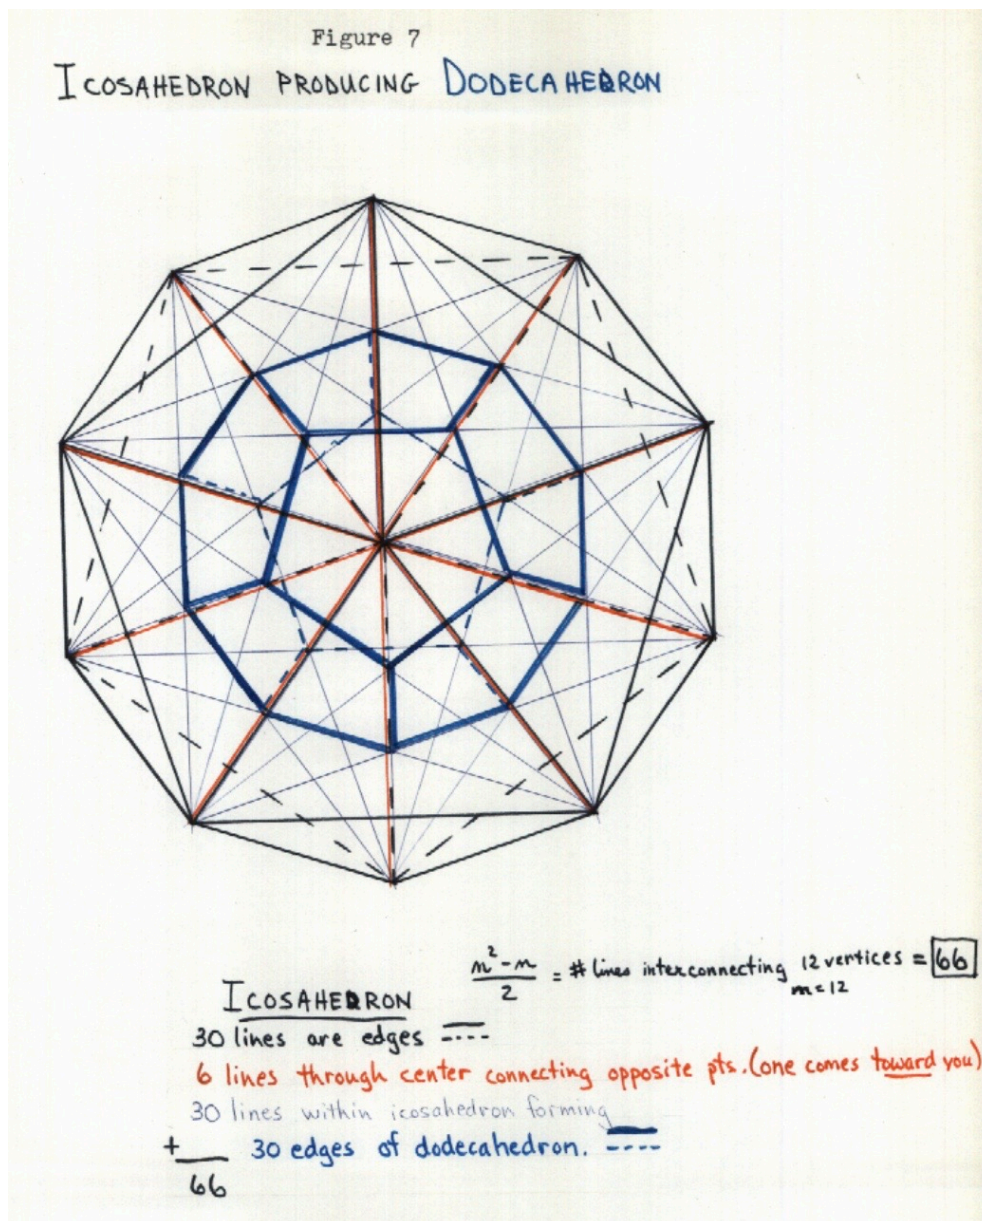 Figure 7
ICOSAHEDRON PRODUCING DODECAHEDRON
n²-n/2 = # lines interconnecting 12 vertices = 66
n=12
ICOSAHEDRON
30 lines are edges
6 lines through center connecting opposite pts. (one comes toward you)
30 lines within icosahedron forming
+ 30 edges of dodecahedron.
66